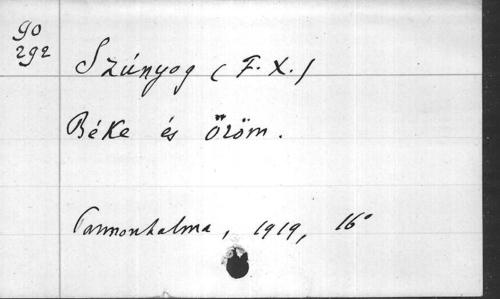 90
292
Szúnyog (F. X.)
Béke és Őröm.
Pannonhalma, 1919, 16°